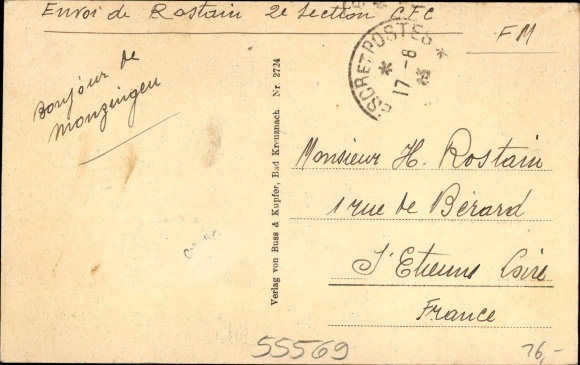 Envoi de Rostain 2e Section C.F.C
FM
TRESOR ET POSTES *
17 - 8
Bonjour de
Monzingen
Verlag von Buss & Kupfer, Bad Kreuznach Nr. 2724
Monsieur H. Rostain
1 rue de Bérard
St Etienne Loire
France
55569
16,-